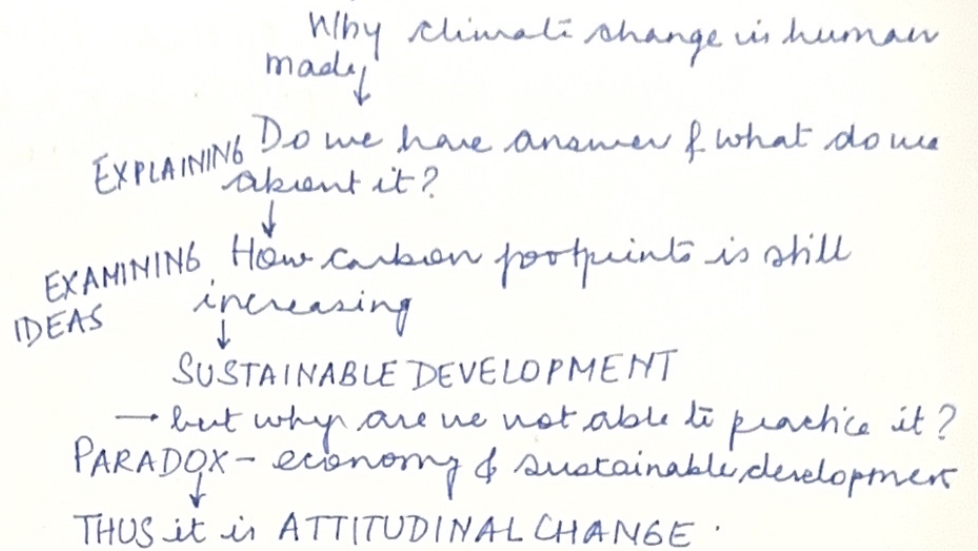 Why climate change is human
made
Do we have answer & what do we
EXPLAINING about it?
How carbon footprints is still
EXAMINING increasing
IDEAS
SUSTAINABLE DEVELOPMENT
→ but why are we not able to practice it?
PARADOX - economy & sustainable development
THUS it is ATTITUDINAL CHANGE.